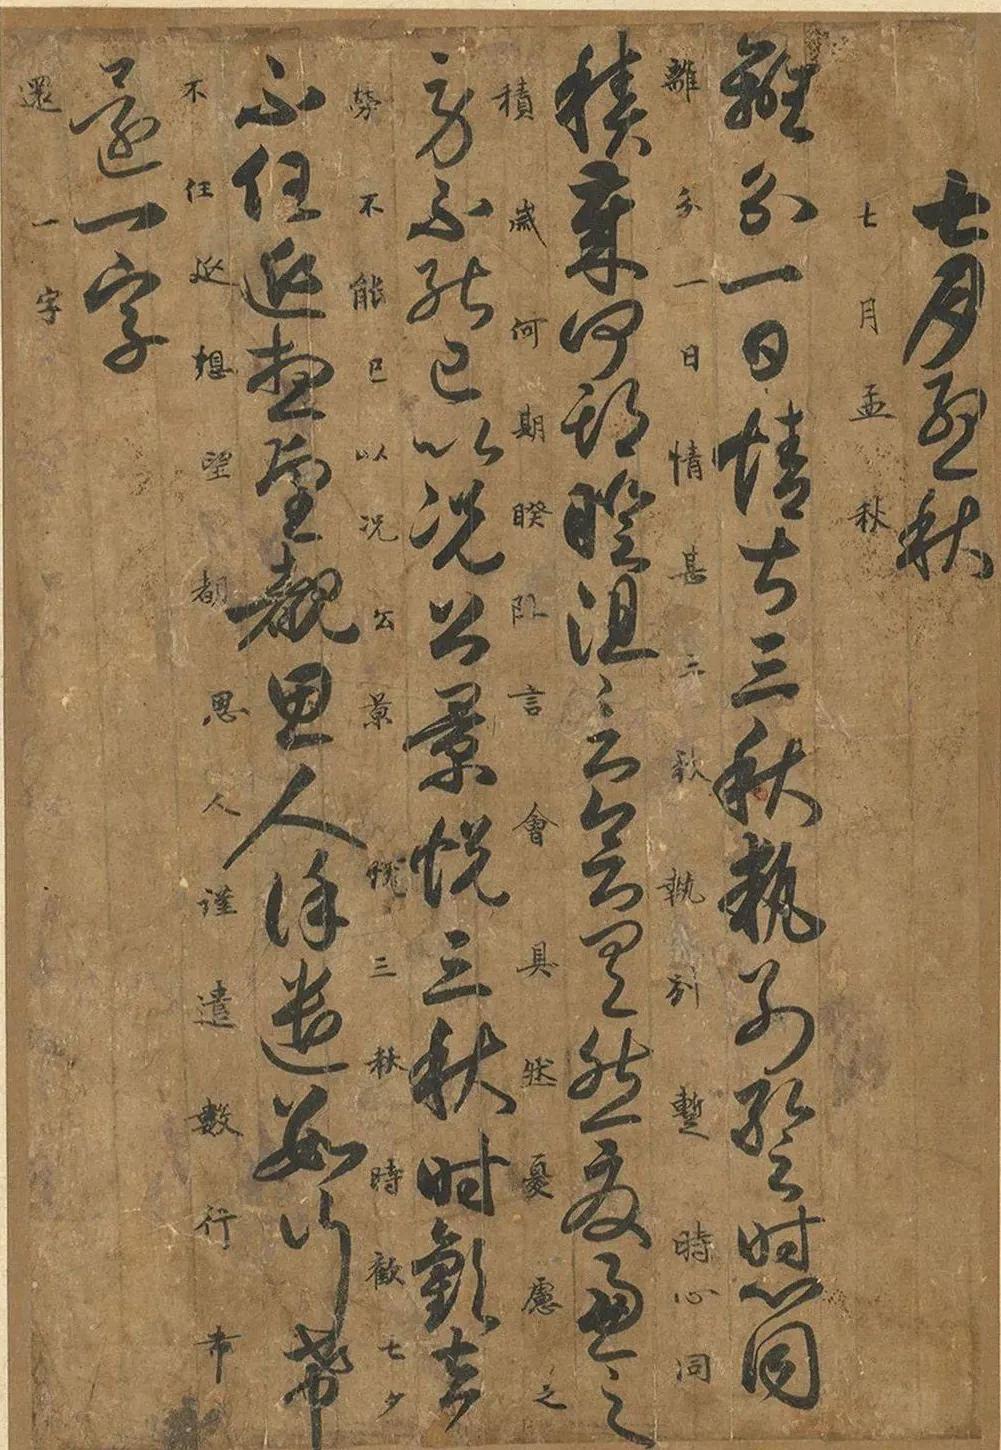 七月孟秋
七月孟秋
離分一日情甚三秋執別暫時心同
離分一日情甚三秋執別暫時心同
積歲何期睽阻言會具然憂慮之
積歲何期睽阻言會具然憂慮之
勞不能已以況公景悅三秋時歡七夕
勞不能已以況公景悅三秋時歡七夕
不任延想望覩思人謹遣數行希
不任延想望都思人謹遣數行希
還一字
還一字